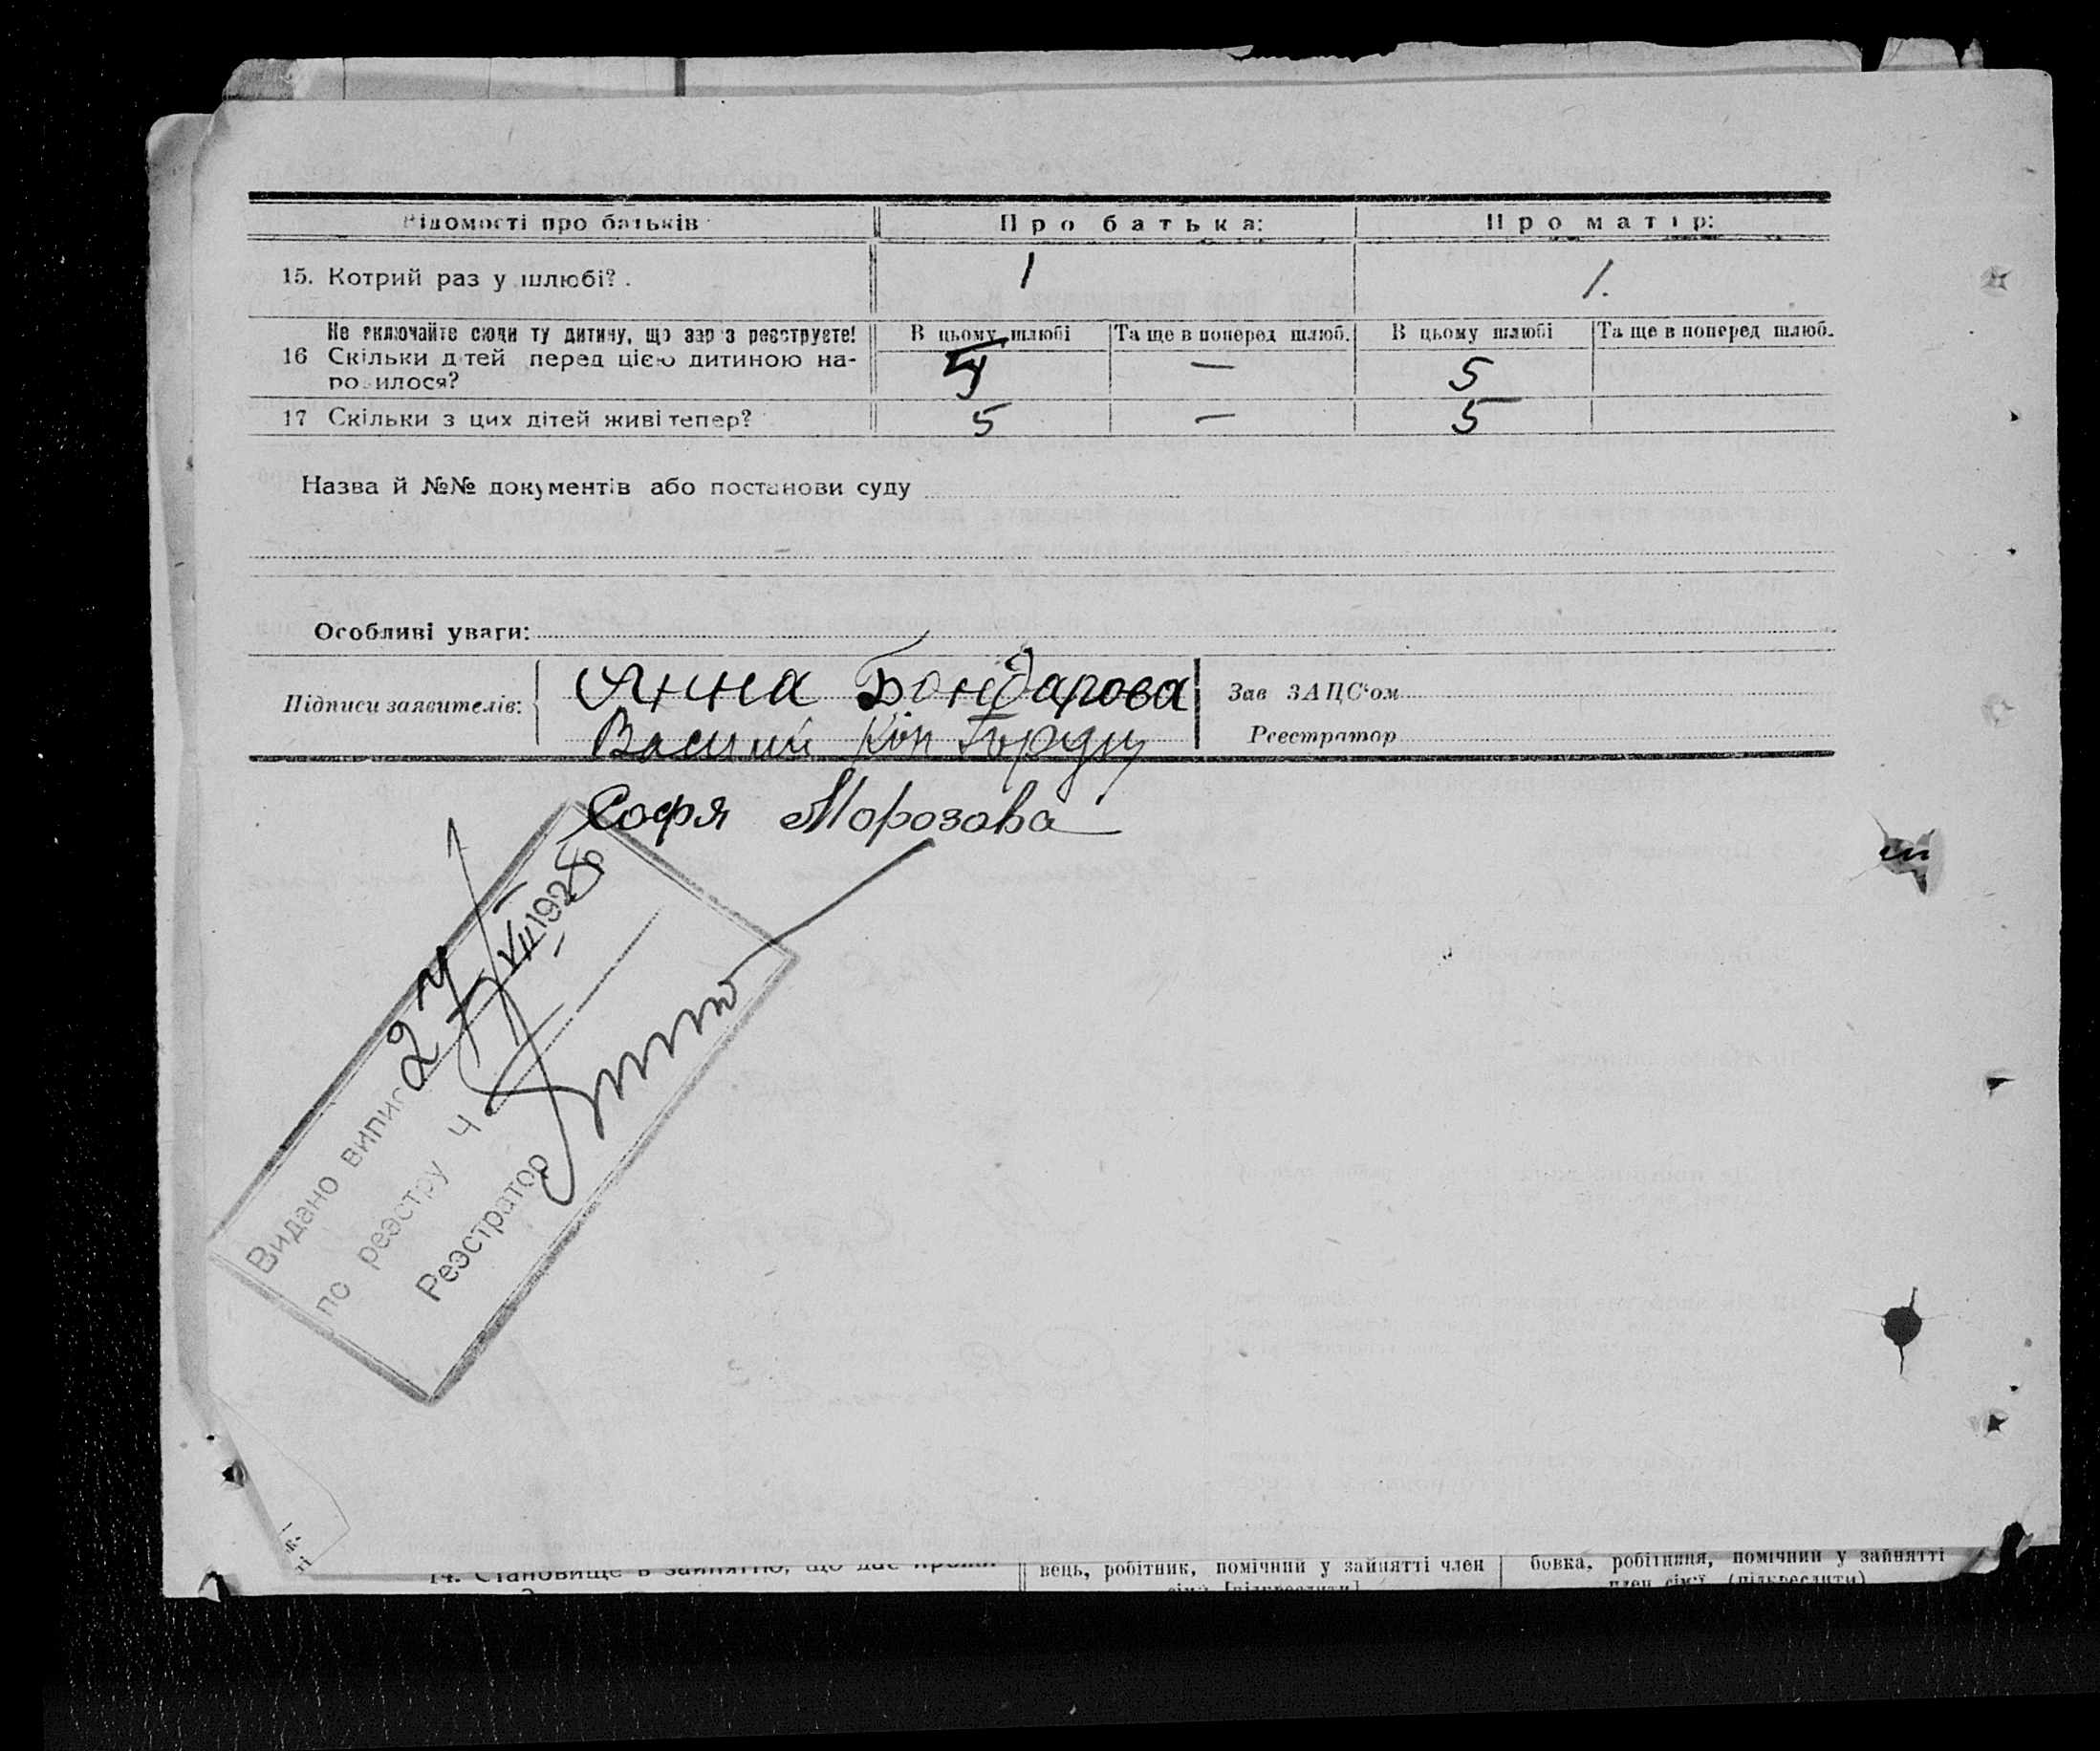 Відомості про батьків Про батька: Про матір:
15. Котрий раз у шлюбі?. 1 1.
Не включайте сюди ту дитину, що зараз реєструєте! В цьому шлюбі Та ще в поперед шлюб. В цьому шлюбі Та ще в поперед шлюб.
16 Скільки дітей перед цією дитиною на- 5 — 5
родилося?
17 Скільки з цих дітей живі тепер? 5 — 5
Назва й №№ документів або постанови суду
Особливі уваги:
Підписи заявителів: Анна Бондарова Зав ЗАЦС'ом
Василий Реєстратор
Софя Морозова
Видано випис 27 VII 1928 р
по реэстру ч
Реэстратор
14. Становище в занятті, що дає
вець, робітник, помічний у зайнятті член
бовка, робітниця, помічний у зайнятті
член сім'ї (підкреслити)